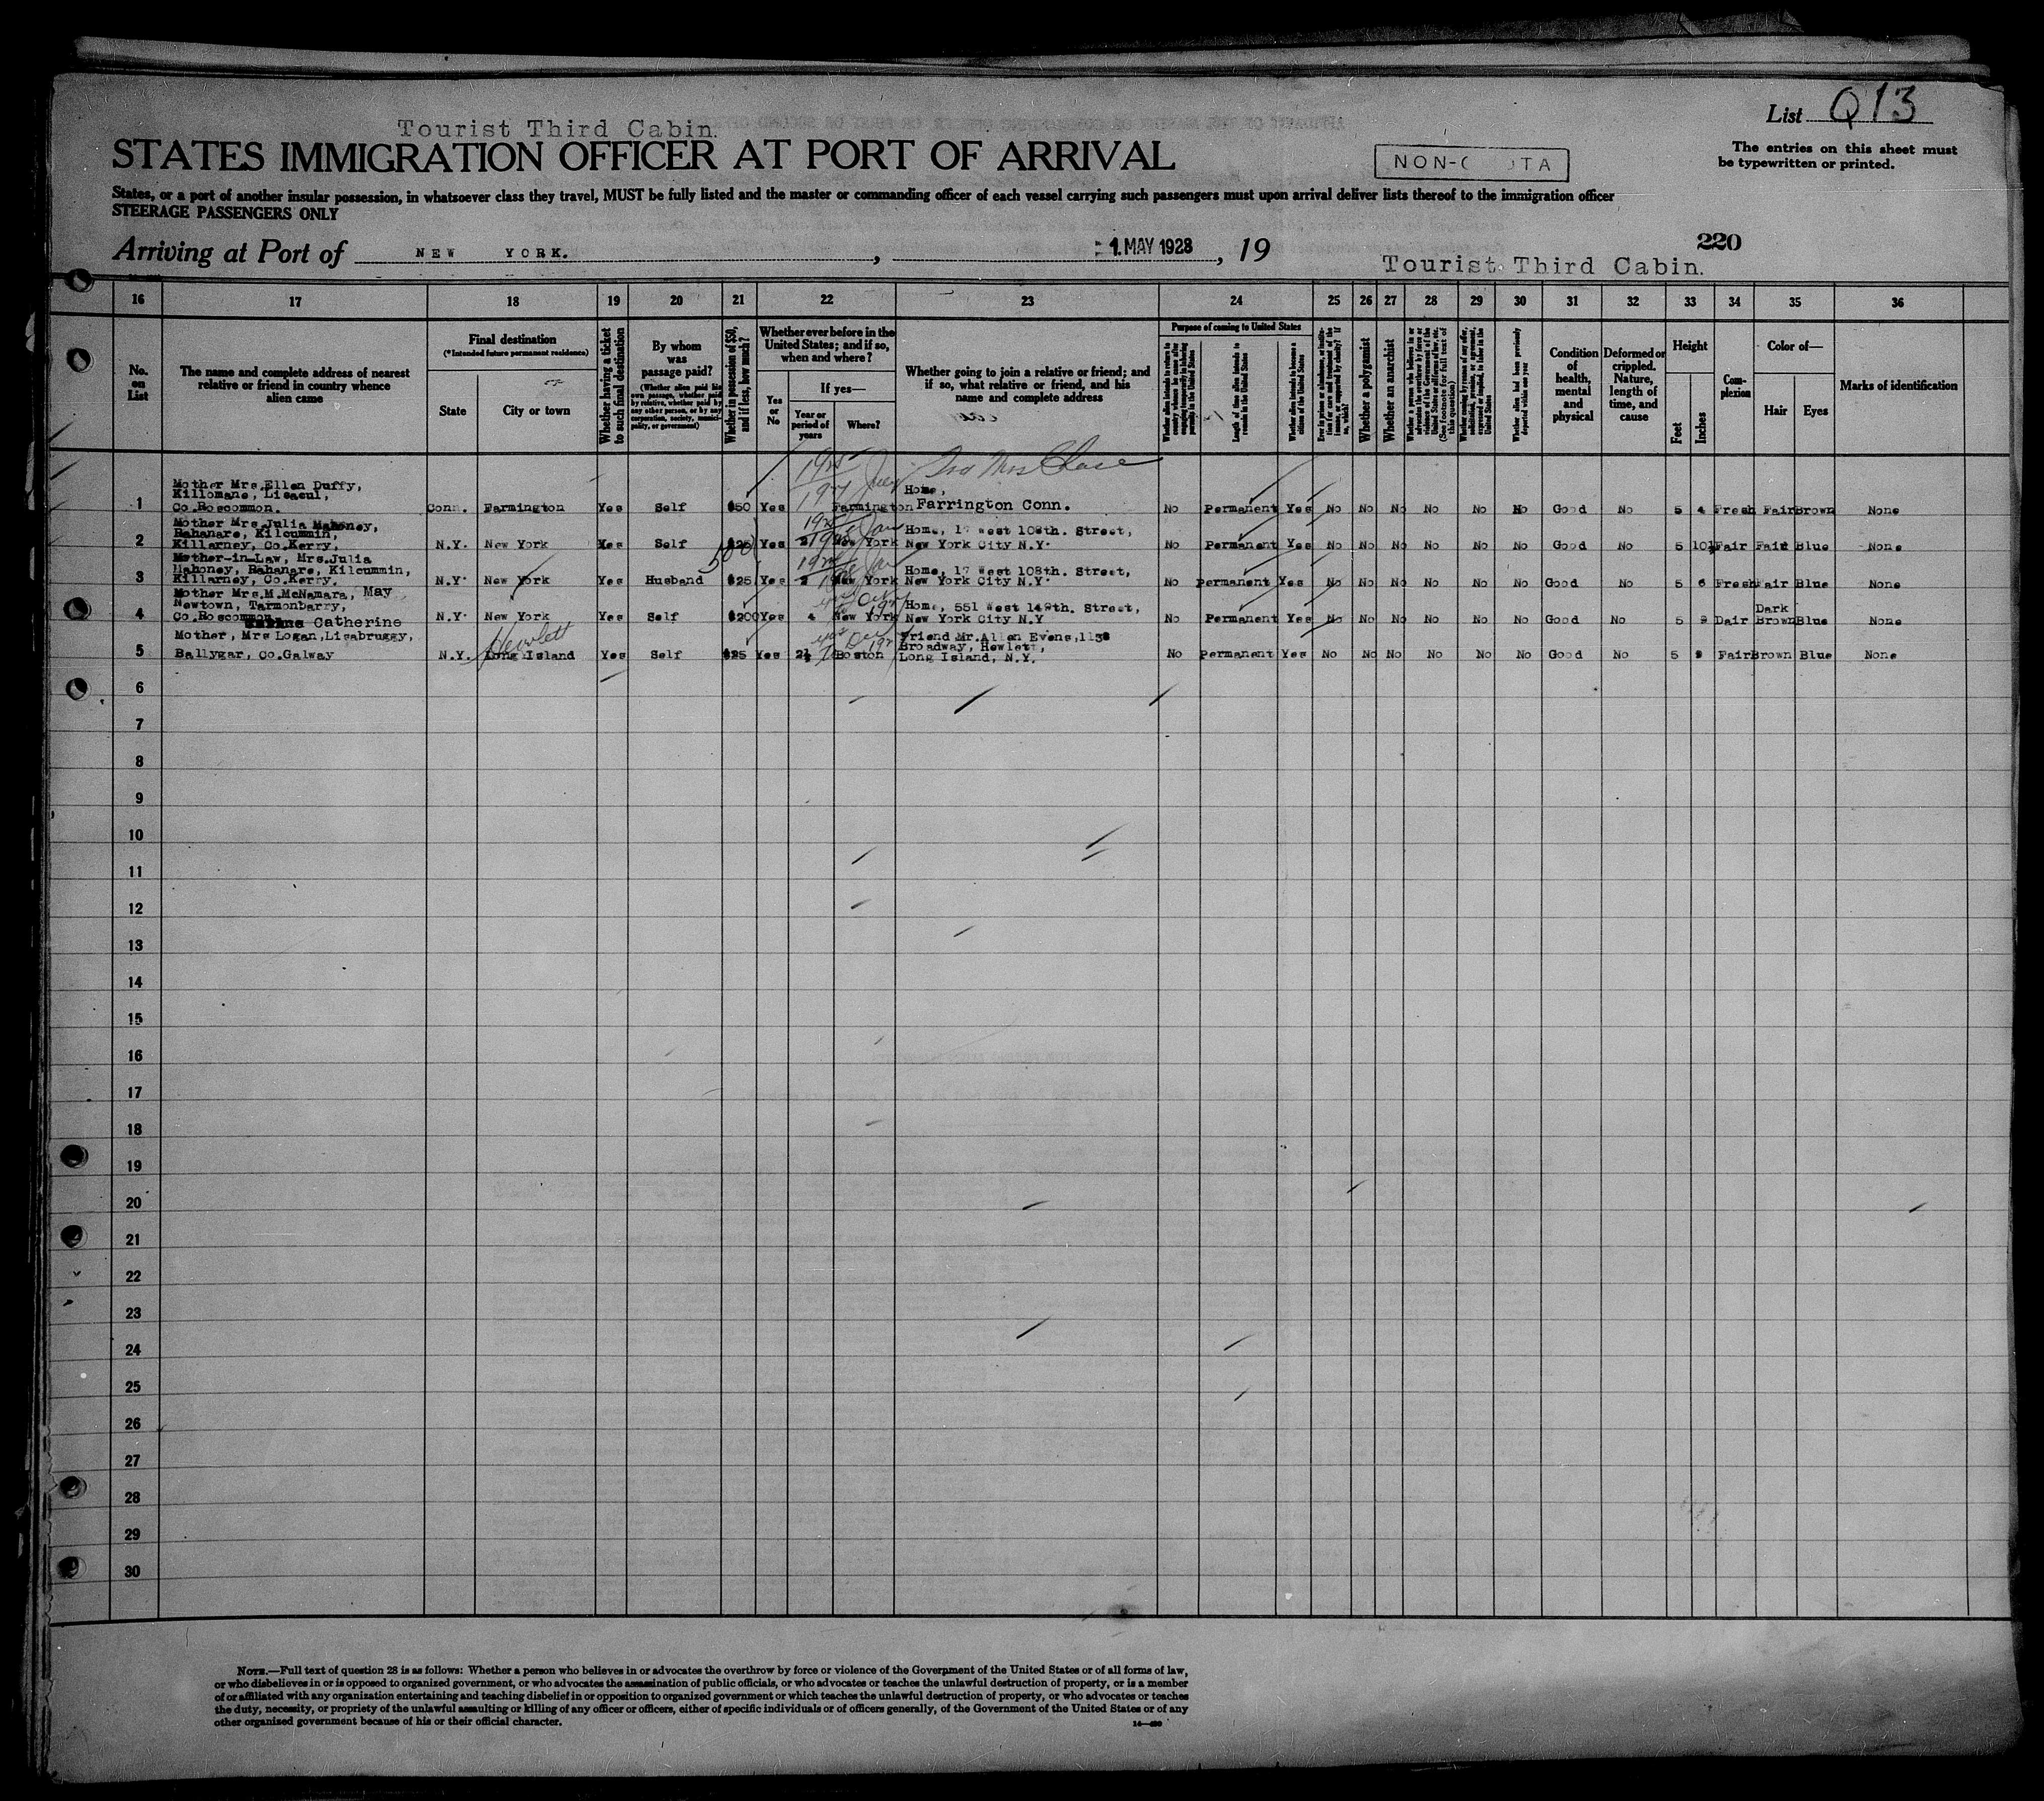 List Q13
Tourist Third Cabin.
STATES IMMIGRATION OFFICER AT PORT OF ARRIVAL
NON-
The entries on this sheet must
be typewritten or printed.
States, or a port of another insular possession, in whatsoever class they travel, MUST be fully listed and the master or commanding officer of each vessel carrying such passengers must upon arrival deliver lists thereof to the immigration officer
STEERAGE PASSENGERS ONLY
Arriving at Port of NEW YORK. , 1 MAY 1928 , 19
220
Tourist Third Cabin.
16 17 18 19 20 21 22 23 24 25 26 27 28 29 30 31 32 33 34 35 36
No.
on
List
The name and complete address of nearest
relative or friend in country whence
alien came
Final destination
(*Intended future permanent residence)
State
City or town
Whether having a ticket
to such final destination
By whom
was
passage paid?
(Whether alien paid his
own passage, whether paid
by relative, whether paid by
any other person, or by any
corporation, society, munici-
pality, or government)
Whether in possession of $50,
and if less, how much?
Whether ever before in the
United States; and if so,
when and where?
Yes
or
No
If yes—
Year or
period of
years
Where?
Whether going to join a relative or friend; and
if so, what relative or friend, and his
name and complete address
Purpose of coming to United States
Length of time alien intends to
remain in the United States
Whether alien intends to become a
citizen of the United States
Whether a polygamist
Whether an anarchist
Whether alien had been previously
deported within one year
Condition
of
health,
mental
and
physical
Deformed or
crippled.
Nature,
length of
time, and
cause
Height
Feet
Inches
Com-
plexion
Color of—
Hair
Eyes
Marks of identification
Mrs Chase
Mother Mrs.Ellen Duffy,
Killomane, Lisacul,
Co.Roscommon.
1 Conn. Farmington Yes Self $50 Yes 1927 July Farmington Home, Farrington Conn. No Permanent Yes No No No No No No Good No 5 4 Fresh Fair Brown None
Mother Mrs Julia Mahoney,
Rahanare, Kilcummin,
Killarney, Co.Kerry.
2 N.Y. New York Yes Self $25 Yes 2 New York Home, 17 West 108th. Street,
New York City N.Y. No Permanent Yes No No No No No No Good No 5 10½ Fair Fair Blue None
Mother-in-Law, Mrs.Julia
Mahoney, Rahanare, Kilcummin,
Killarney, Co.Kerry.
3 N.Y. New York Yes Husband $25 Yes 2 New York Home, 17 West 108th. Street,
New York City N.Y. No Permanent Yes No No No No No No Good No 5 6 Fresh Fair Blue None
Mother Mrs.M.McNamara, May
Newtown, Tarmonbarry,
Co.Roscommon
4 N.Y. New York Yes Self $200 Yes 4 New York Home, 551 West 149th. Street,
New York City N.Y No Permanent Yes No No No No No No Good No 5 9 Dair Dark Brown Blue None
Catherine
Mother, Mrs Logan,Lisabruggy,
Ballygar, Co.Galway
5 N.Y. Hewlett Long Island Yes Self $25 Yes 2½ Boston Friend Mr.Allen Evens,1138
Broadway, Hewlett,
Long Island, N.Y. No Permanent Yes No No No No No No Good No 5 9 Fair Brown Blue None
6
7
8
9
10
11
12
13
14
15
16
17
18
19
20
21
22
23
24
25
26
27
28
29
30
NOTE.—Full text of question 28 is as follows: Whether a person who believes in or advocates the overthrow by force or violence of the Government of the United States or of all forms of law,
or who disbelieves in or is opposed to organized government, or who advocates the assassination of public officials, or who advocates or teaches the unlawful destruction of property, or is a member
of or affiliated with any organization entertaining and teaching disbelief in or opposition to organized government or which teaches the unlawful destruction of property, or who advocates or teaches
the duty, necessity, or propriety of the unlawful assaulting or killing of any officer or officers, either of specific individuals or of officers generally, of the Government of the United States or of any
other organized government because of his or their official character.